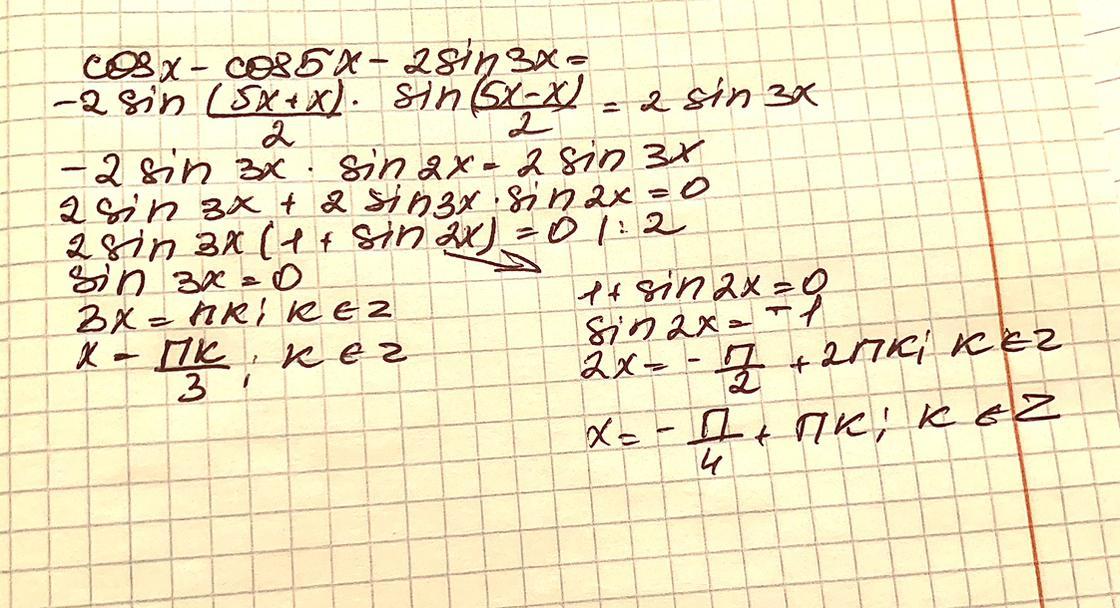 cosx - cos5x - 2sin3x =
-2 sin (5x+x)/2 · sin (5x-x)/2 = 2 sin 3x
-2 sin 3x · sin 2x = 2 sin 3x
2 sin 3x + 2 sin3x · sin 2x = 0
2 sin 3x (1 + sin 2x) = 0 |: 2
sin 3x = 0
3x = πk; k ∈ Z
x = πk/3; k ∈ Z
1 + sin 2x = 0
sin 2x = -1
2x = - π/2 + 2πk; k ∈ Z
x = - π/4 + πk; k ∈ Z